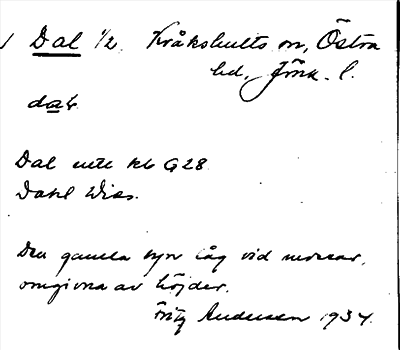 Dal 1/2 Kråkshults sn, Östra
hd, Jönk. l.
Dal
Dahl Wies.
Den gamla byn låg vid mossar,
omgivna av höjder.
Fritz Andersen 1934.